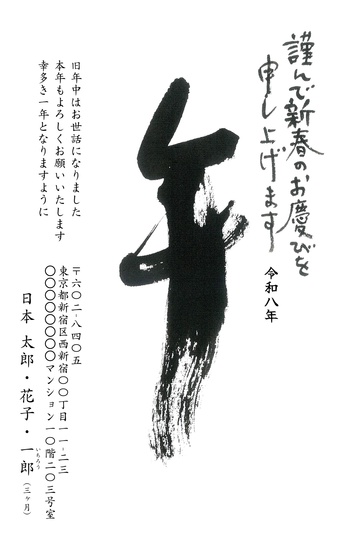 謹んで新春のお慶びを
申し上げます
令和八年
午
旧年中はお世話になりました
本年もよろしくお願いいたします
幸多き一年となりますように
〒六〇二-八四〇五
東京都新宿区西新宿〇〇丁目一一-二三
〇〇〇〇〇〇〇マンション一〇階二〇三号室
日本 太郎・花子・一郎(三ヶ月)
いちろう